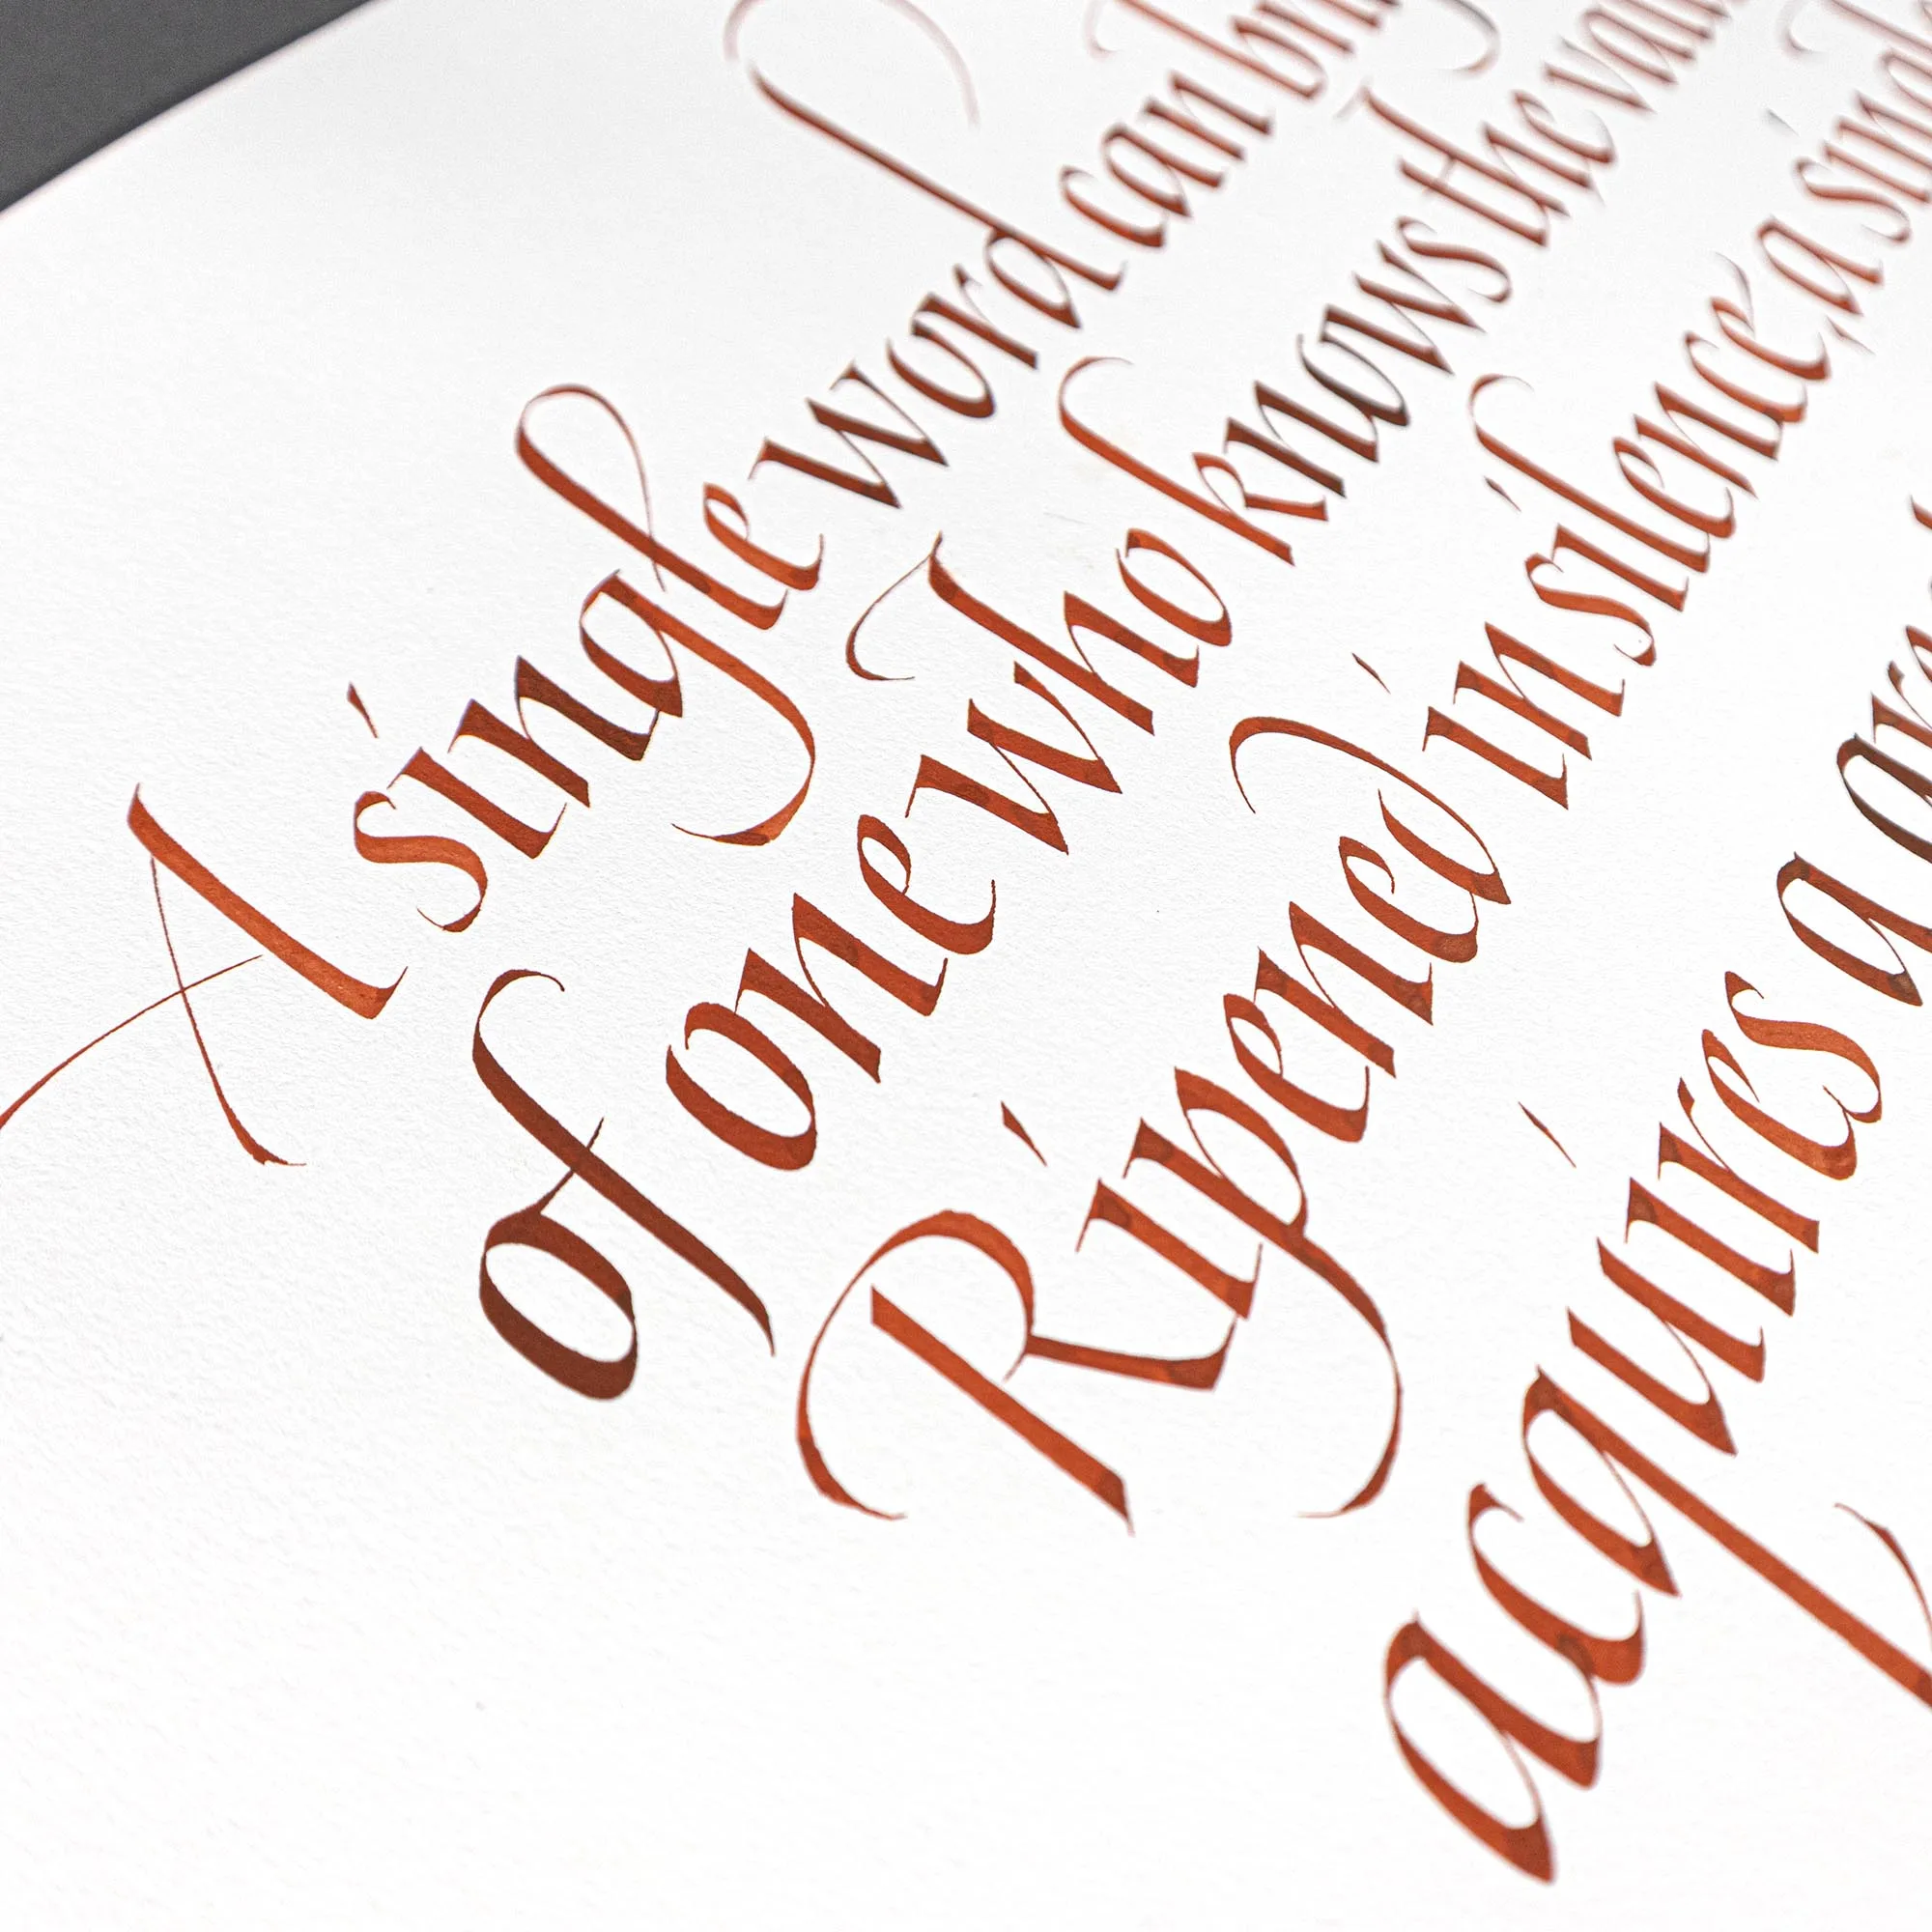 A single word can
of one who knows the
Ripened in silence, a
acquires a